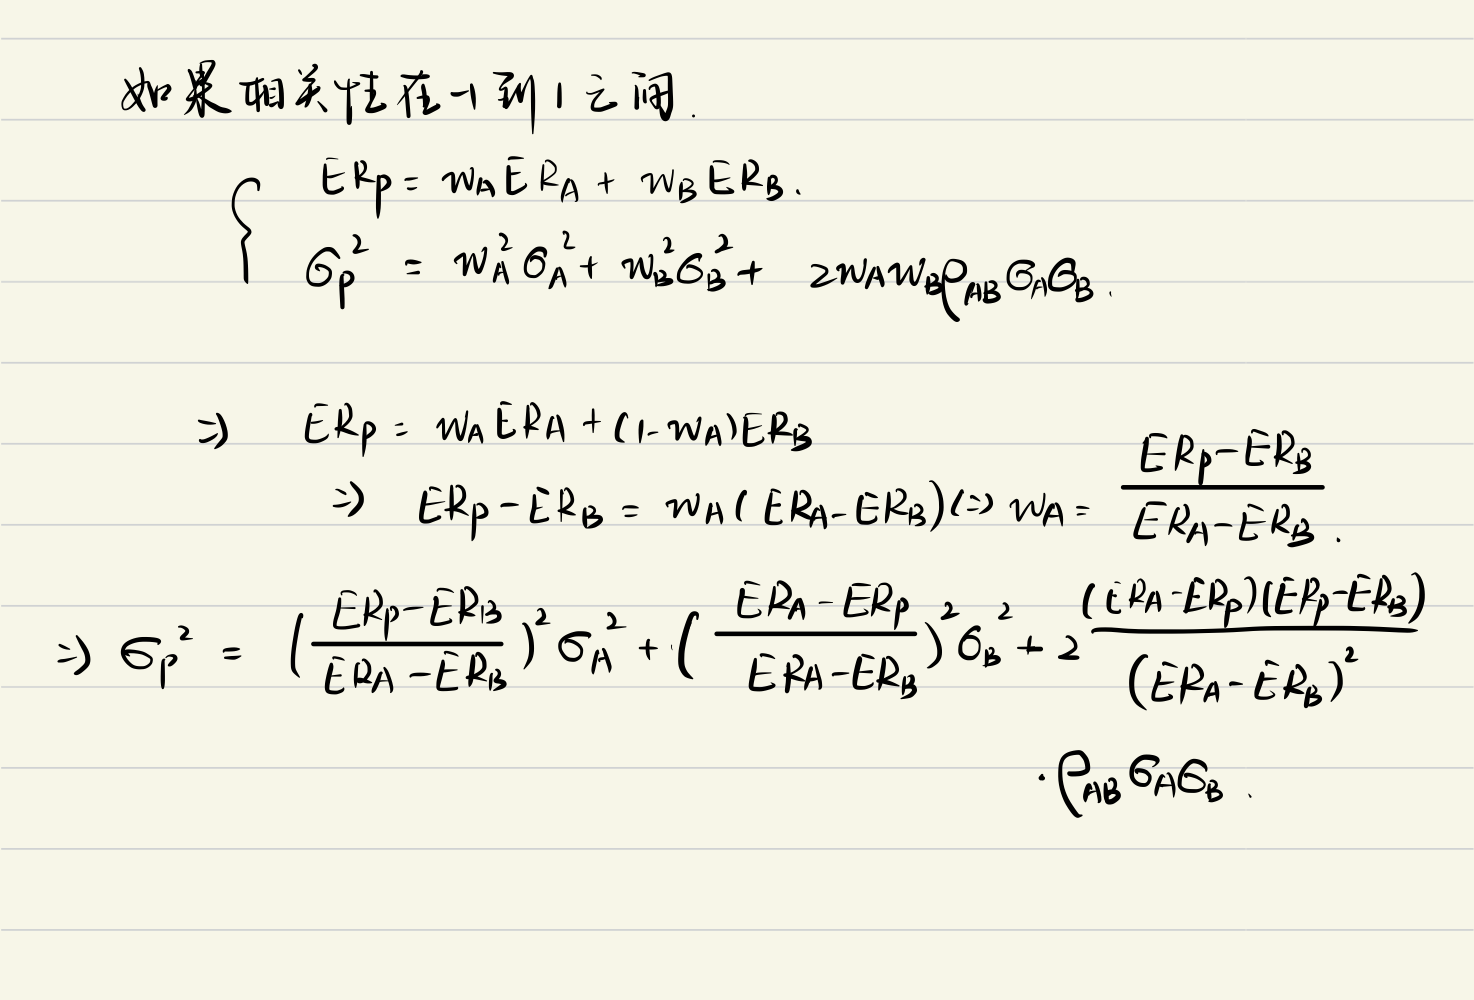 如果相关性在-1到1之间.
{ ERp = wA ERA + wB ERB.
σp² = wA² σA² + wB² σB² + 2wA wB ρAB σA σB.
⇒ ERp = wA ERA + (1-wA)ERB
⇒ ERp - ERB = wA ( ERA - ERB ) ⇔ wA = (ERp - ERB)/(ERA - ERB).
⇒ σp² = ((ERp - ERB)/(ERA - ERB))² σA² + ((ERA - ERp)/(ERA - ERB))² σB² + 2 (ERA - ERp)(ERp - ERB)/(ERA - ERB)²
· ρAB σA σB.